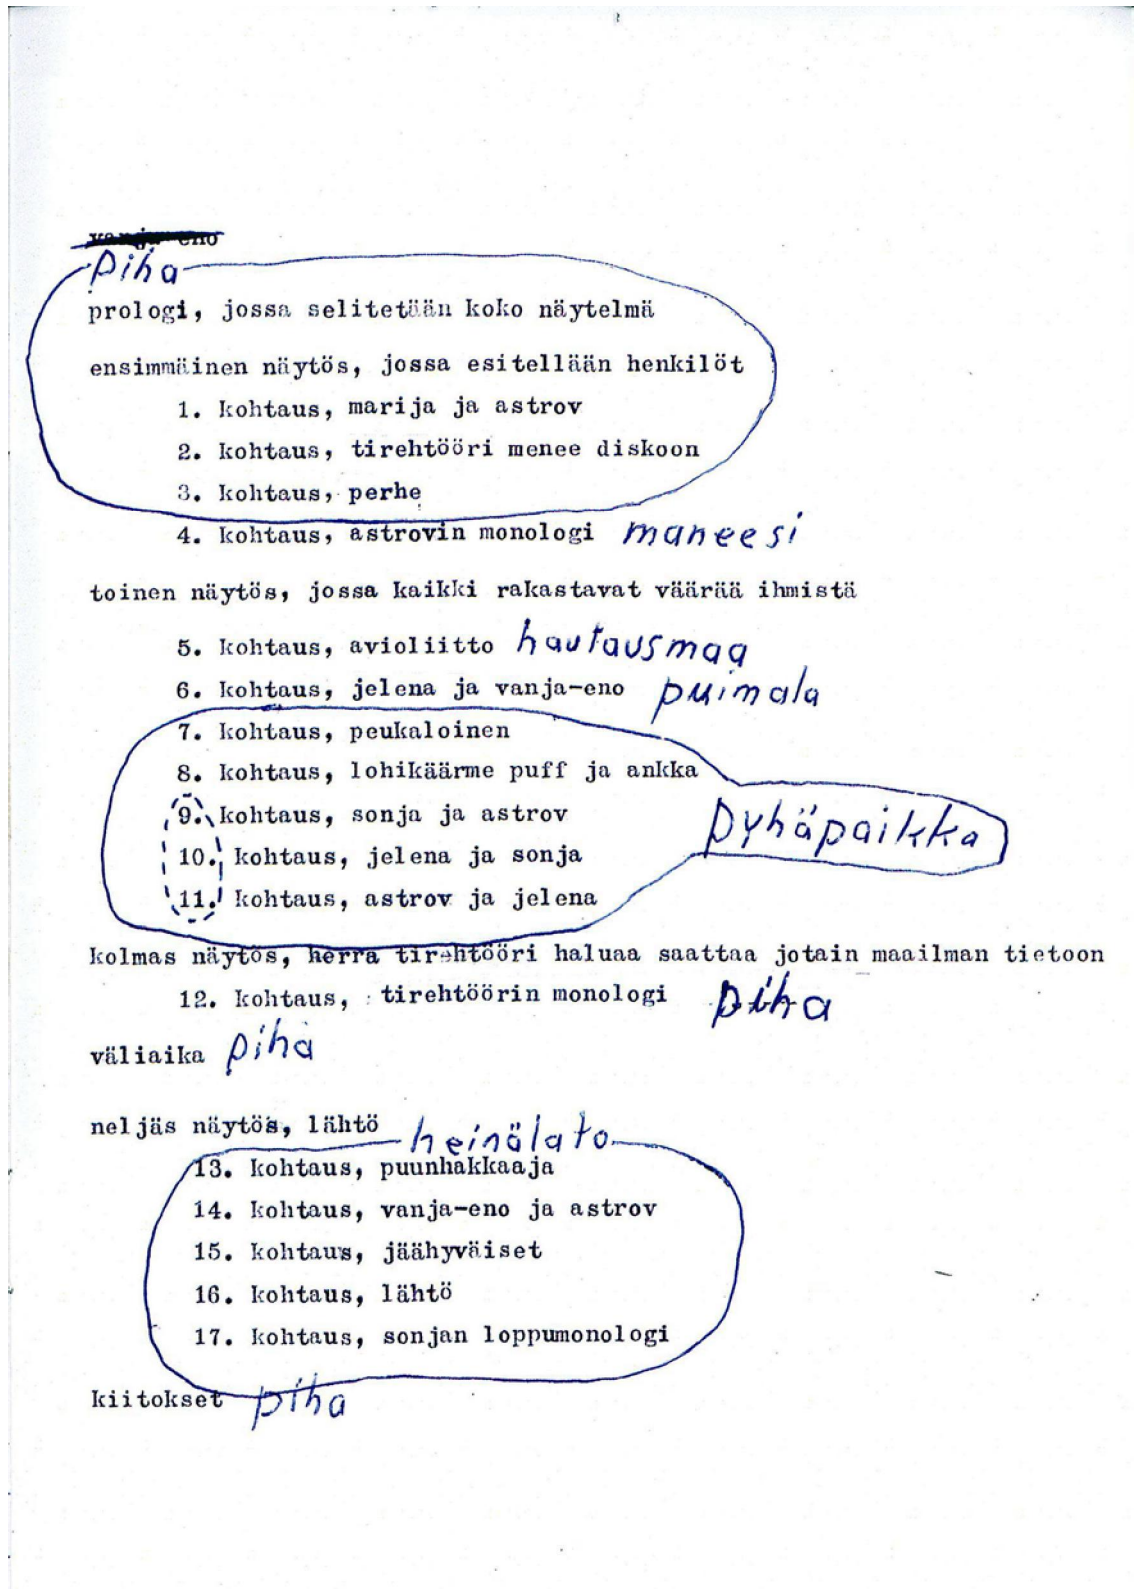 vanja eno
piha
prologi, jossa selitetään koko näytelmä
ensimmäinen näytös, jossa esitellään henkilöt
1. kohtaus, marija ja astrov
2. kohtaus, tirehtööri menee diskoon
3. kohtaus, perhe
4. kohtaus, astrovin monologi maneesi
toinen näytös, jossa kaikki rakastavat väärää ihmistä
5. kohtaus, avioliitto hautausmaa
6. kohtaus, jelena ja vanja-eno puimala
7. kohtaus, peukaloinen
8. kohtaus, lohikäärme puff ja ankka
9. kohtaus, sonja ja astrov pyhäpaikka
10. kohtaus, jelena ja sonja
11. kohtaus, astrov ja jelena
kolmas näytös, herra tirehtööri haluaa saattaa jotain maailman tietoon
12. kohtaus, tirehtöörin monologi piha
väliaika piha
neljäs näytös, lähtö heinälato
13. kohtaus, puunhakkaaja
14. kohtaus, vanja-eno ja astrov
15. kohtaus, jäähyväiset
16. kohtaus, lähtö
17. kohtaus, sonjan loppumonologi
kiitokset piha